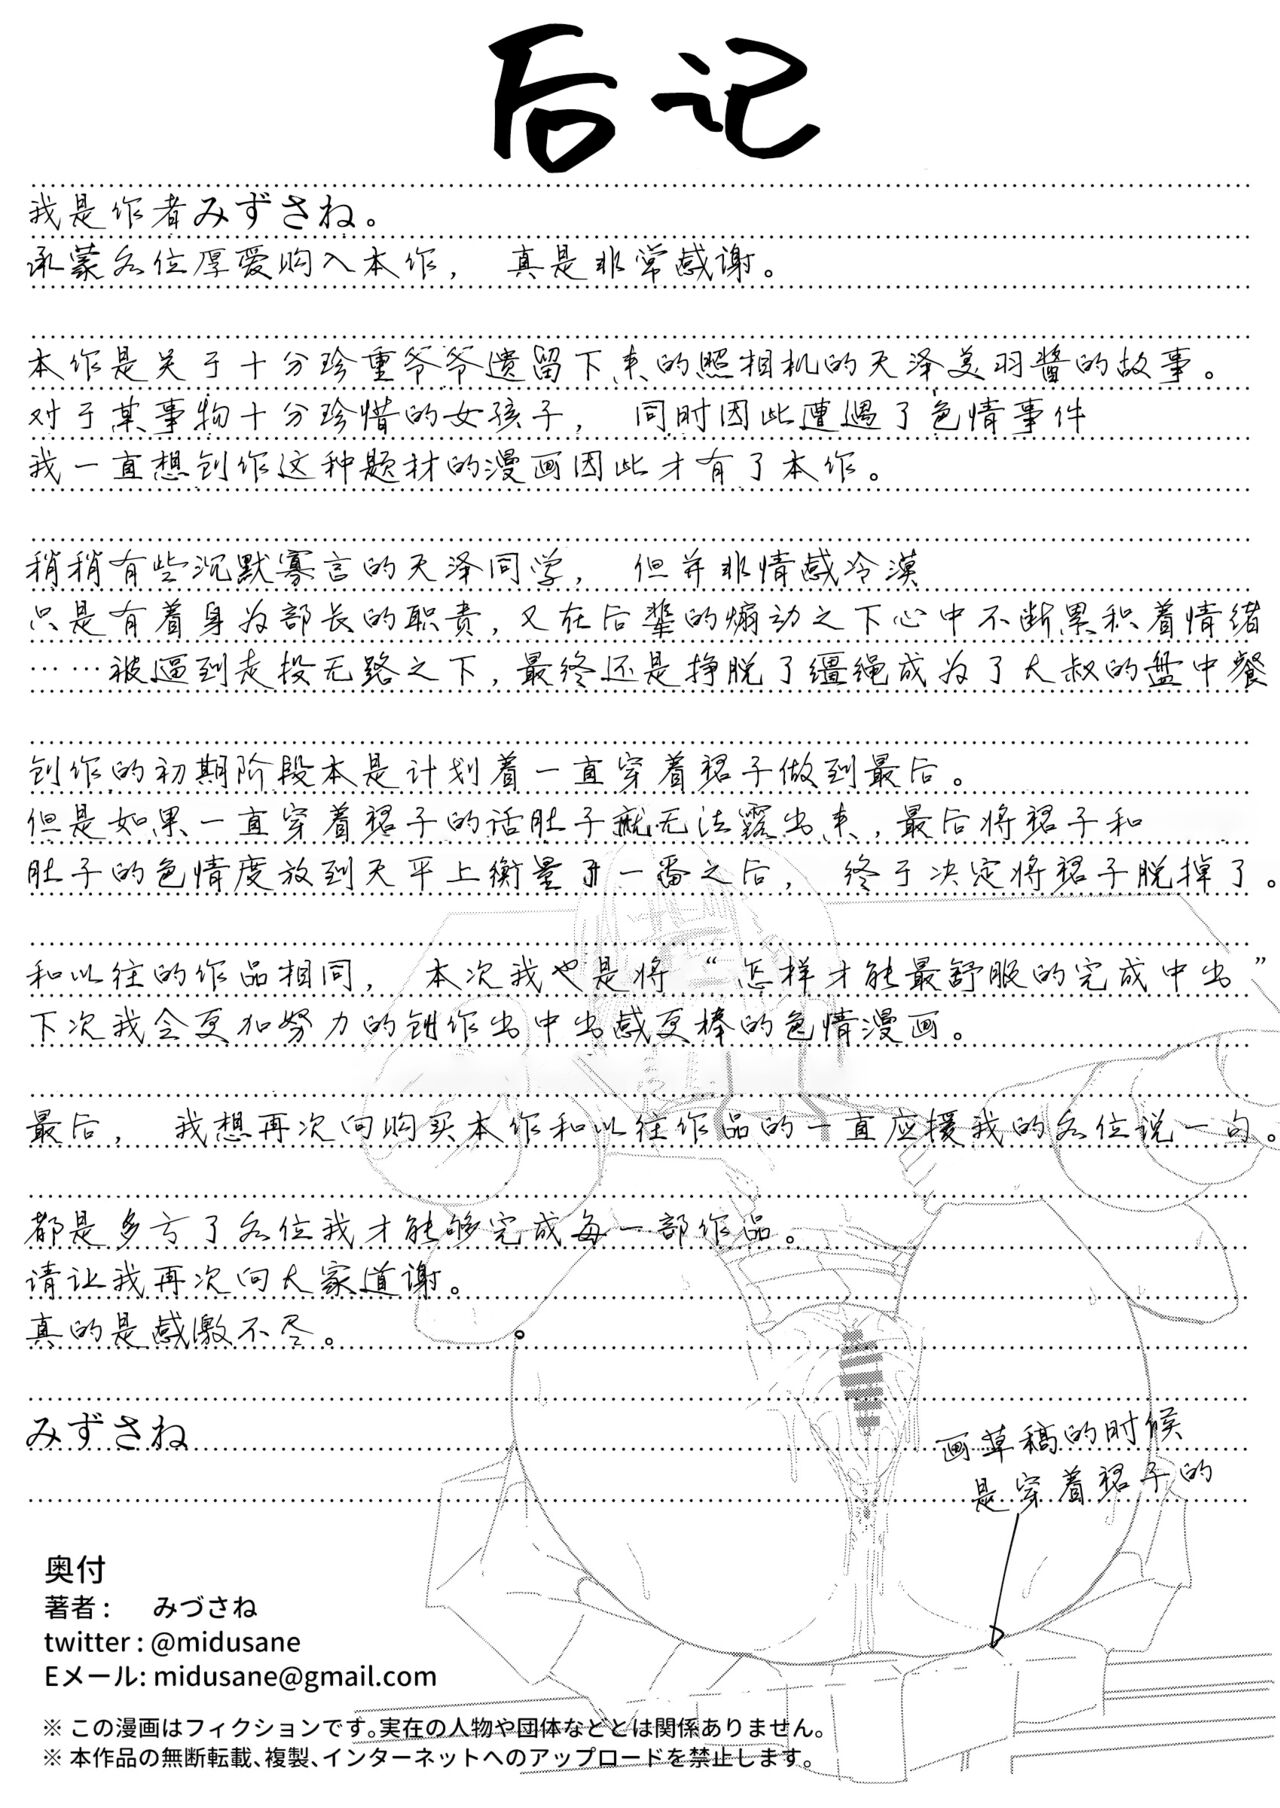 后记
我是作者みずさね。
承蒙各位厚爱购入本作, 真是非常感谢。
本作是关于十分珍重爷爷遗留下来的照相机的天泽美羽酱的故事。
对于某事物十分珍惜的女孩子, 同时因此遭遇了色情事件
我一直想创作这种题材的漫画因此才有了本作。
稍稍有些沉默寡言的天泽同学, 但并非情感冷漠
只是有着身为部长的职责,又在后辈的煽动之下心中不断累积着情绪
……被逼到走投无路之下,最终还是挣脱了缰绳成为了大叔的盘中餐
创作的初期阶段本是计划着一直穿着裙子做到最后。
但是如果一直穿着裙子的话肚子就无法露出来,最后将裙子和
肚子的色情度放到天平上衡量了一番之后, 终于决定将裙子脱掉了。
和以往的作品相同, 本次我也是将“怎样才能最舒服的完成中出”
下次我会更加努力的创作出中出感更棒的色情漫画。
最后, 我想再次向购买本作和以往作品的一直应援我的各位说一句。
都是多亏了各位我才能够完成每一部作品。
请让我再次向大家道谢。
真的是感激不尽。
みずさね
画草稿的时候
是穿着裙子的
奥付
著者: みづさね
twitter : @midusane
Eメール: midusane@gmail.com
※ この漫画はフィクションです。実在の人物や団体などとは関係ありません。
※ 本作品の無断転載、複製、インターネットへのアップロードを禁止します。